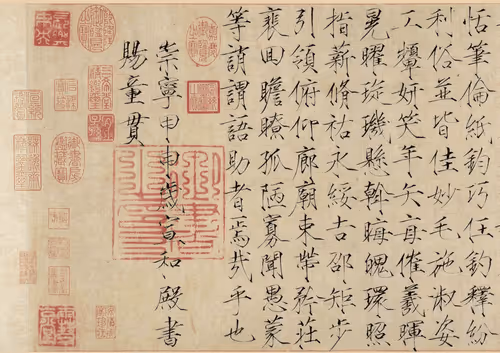 恬筆倫紙鈞巧任釣釋紛
利俗並皆佳妙毛施淑姿
工顰妍笑年矢每催羲暉
晃曜琁璣懸斡晦魄環照
指薪脩祜永綏吉邵矩步
引領俯仰廊廟束帶矜莊
裵回瞻眺孤陋寡聞愚蒙
等誚謂語助者焉哉乎也
崇寧甲申歲宣和殿書
賜童貫